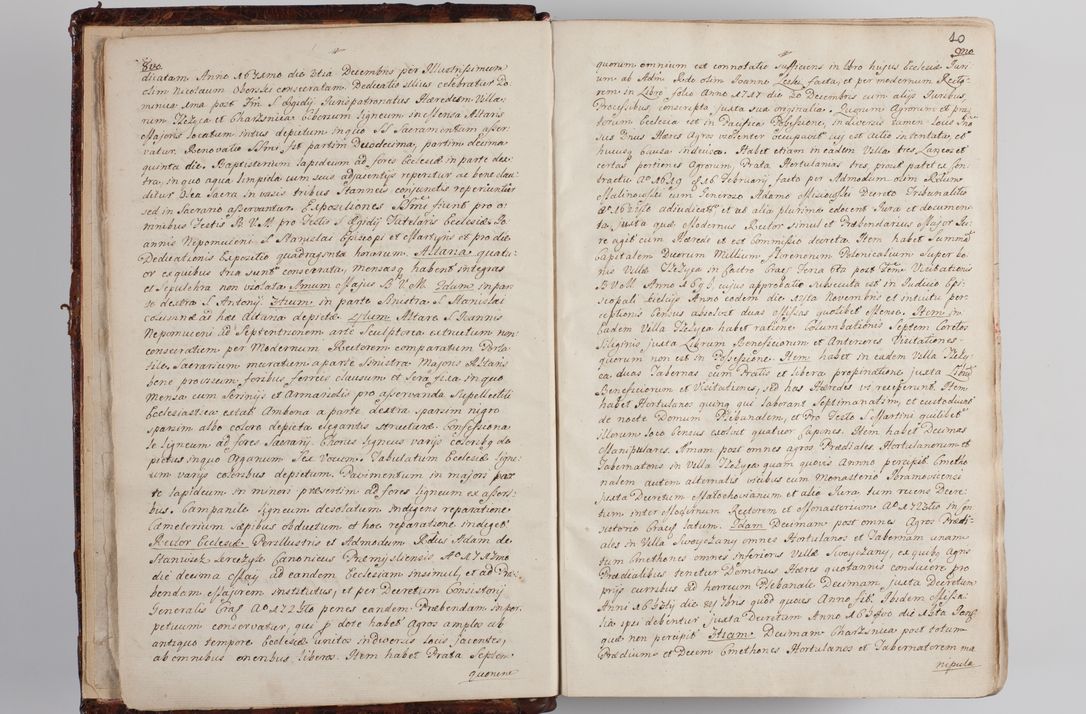 8vo
dicatam Anno 1671mo die 3tia Decembris per Illustrissimum
olim Nicolaum Oborski consecratam. Dedicatio illius celebratur Do-
minica 1ma post Fm S. Ægidij Jurispatronatus Hæredum Villa-
rum Tczyca et Charsznica Ciborium ligneum in Mensa Altaris
Majoris locatum intus depictum in quo SS Sacramentum asser-
vatur. Renovatio SSmi fit partim Duodecima, partim decima
quinta die. Baptisterium lapideum ad fores Ecclesiæ in parte dex-
tra, in quo aqua limpida cum suis adjacentijs reperitur ac bene clau-
ditur Olea Sacra in vasis tribus Stanneis conjunctis reperiuntur
sed in Sacrario asservantur. Expositiones SSmi fiunt pro o-
mnibus Festis B. V. M. pro Festo S. Ægidij Tutelaris Ecclesiæ Jo-
annis Nepomuceni S. Stanislai Episcopi et Martyris et pro die
Dedicationis Expositio quadraginta horarum. Altaria quatu-
or ex quibus tria sunt consecrata, mensasq habent integras
et Sepulchra non violata. 1mum Majus B. V. M. 2dum in par-
te dextra S. Antonij. 3tium in parte Sinistra S. Stanislai
columnæ ad hæc ditaria depictæ. 4tum Altare S. Joannis
Nepomuceni ad Septentrionem arte Sculptorea extructum non
consecratum per Modernum Rectorem comparatum Porta-
tile. Sacrarium muratum a parte Sinistra Majoris Altaris
bene provisum foribus ferreis clausum et Sera fixa in quo
Mensa cum Scrinijs et Armariolis pro asservanda Supellectili
Ecclesiastica extat. Ambona a parte dextra sparsim nigro
sparsim albo colore depicta elegantis structuræ. Confessiona-
le ligneum ad fores Sacrarij. Chorus ligneus varijs coloribq de-
pictus in quo Organum Sex Vocum. Tabulatum Ecclesiæ ligne-
um varijs coloribus depictum. Pavimentum in majori par-
te lapideum in minori præsertim ad fores ligneum ex asseri-
bus. Campanile ligneum desolatum indigens reparatione
Cœmeterium sæpibus obductum et hoc reparatione indiget
Rector Ecclesiæ. Perillustris et Admodum Rndus Adam de
Staniwicz Jerczyk Canonicus Præmysliensis A° 1717mo
die decima Maij ad eandem Ecclesiam insimul, et ad Præ-
bendam Majorem institutus, et per Decretum Consistorij
Generalis Crac A° 1727mo penes eandem Præbendam in per-
petuum conservatur, qui p dote habet Agros amplos ab
antiquo tempore Ecclesiæ unitos in diversis locis jacentes,
ab omnibus oneribus liberos. Item habet Prata Septem
quorum
10
9no
quorum omnium est connotatio sufficiens in Libro hujus Ecclesiæ Juri-
um ab Adm Rndo olim Joanne facta, et per modernum Recto-
rem in Libro folio Anno 1727 die 20 Decembris cum alijs Juribus,
Processibus, conscripta juxta sua originalia. Quorum Agrorum et pra-
torum Ecclesia est in Pacifica Possessione, in diversis tamen locis In-
sus Dnus Hæres Agros violenter occupavit cuj est actio intentata, et
hucusq causa indecisa. Habet etiam in eadem Villa tres Laneos et
certas portiones Agrorum, Prata Hortulanias tres, prout patet ex Con-
tractu A° 1619 d 16 Februarij facto per Admodum olim Rndum
Malinowski cum Generoso Adamo Misiowski Decreto Tribunalitio
A° 1625to adjudicat et ut alia plurima edocent Jura et documen-
ta, juxta quæ Modernus Rector simul et Præbendarius Major Ju-
re agit cum Hærede et est Commissio decreta. Item habet Summā
Capitalem Duorum Millium Florenorum Polonicalium super bo-
nis Villæ Tczyca in Castro Crac Feria 6ta post Fm Visitationis
B V M Anno 1696, cujus approbatio subsecuta est in Judicio Epi-
scopali Kielcijs Anno eodem die 12ma Novembris et intuitu per-
ceptionis Census absolvit duas Missas quolibet Mense. Item in
Eadem Villa Tczyca habet ratione Columbationis Septem Coretos
Siliginis, juxta Librum Beneficiorum et Anteriores Visitationes
quorum non est in Possessione. Item habet in eadem Villa Tczy-
ca duas Tabernas cum Pratis et libera propinatione juxta Librū
Beneficiorum et Visitationes, sed has Hæredes vi receperunt. Item
habet Hortulanos quinq qui laborant Septimanatim, et custodiunt
de nocte Domum Plebanalem, et Pro Festo S Martini quilibet
illorum loco Census exolvit quatuor capones. Item habet Decimas
Manipulares. 1mam post omnes agros Prædiales Hortulanorum et
Tabernatoris in Villa Tczyca quam quovis Anno percipit Cmetho-
nalem autem alternatis vicibus cum Monasterio Ibramovicensi
juxta Decretum Małachovianum et alia Jura, tum recens Decre-
tum inter Modernum Rectorem et Monasterium A° 1727tio in Con-
sistorio Crac latum. 2dam Decimam post omnes Agros Prædi-
ales in Villa Swoyczany omnes Hortulanos et Tabernam unam
tum Cmethones omnes inferioris Villæ Swoyczany, ex quibq Agris
Prædialibus tenetur Dominus Hæres quotannis conducere pro-
prijs curribus ad horreum Plebanale Decimam, juxta Decretum
Anni 1635tij die 28 7bris quod quovis Anno fit. Ibidem Missa-
lia ipsi debentur juxta Decretum Anno 1638vo die 12ta Jan
quæ non percipit 3tiam Decimam Charsznica post totum
Prædium et Decem Cmethones Hortulanos et Tabernatorem ma
nipula